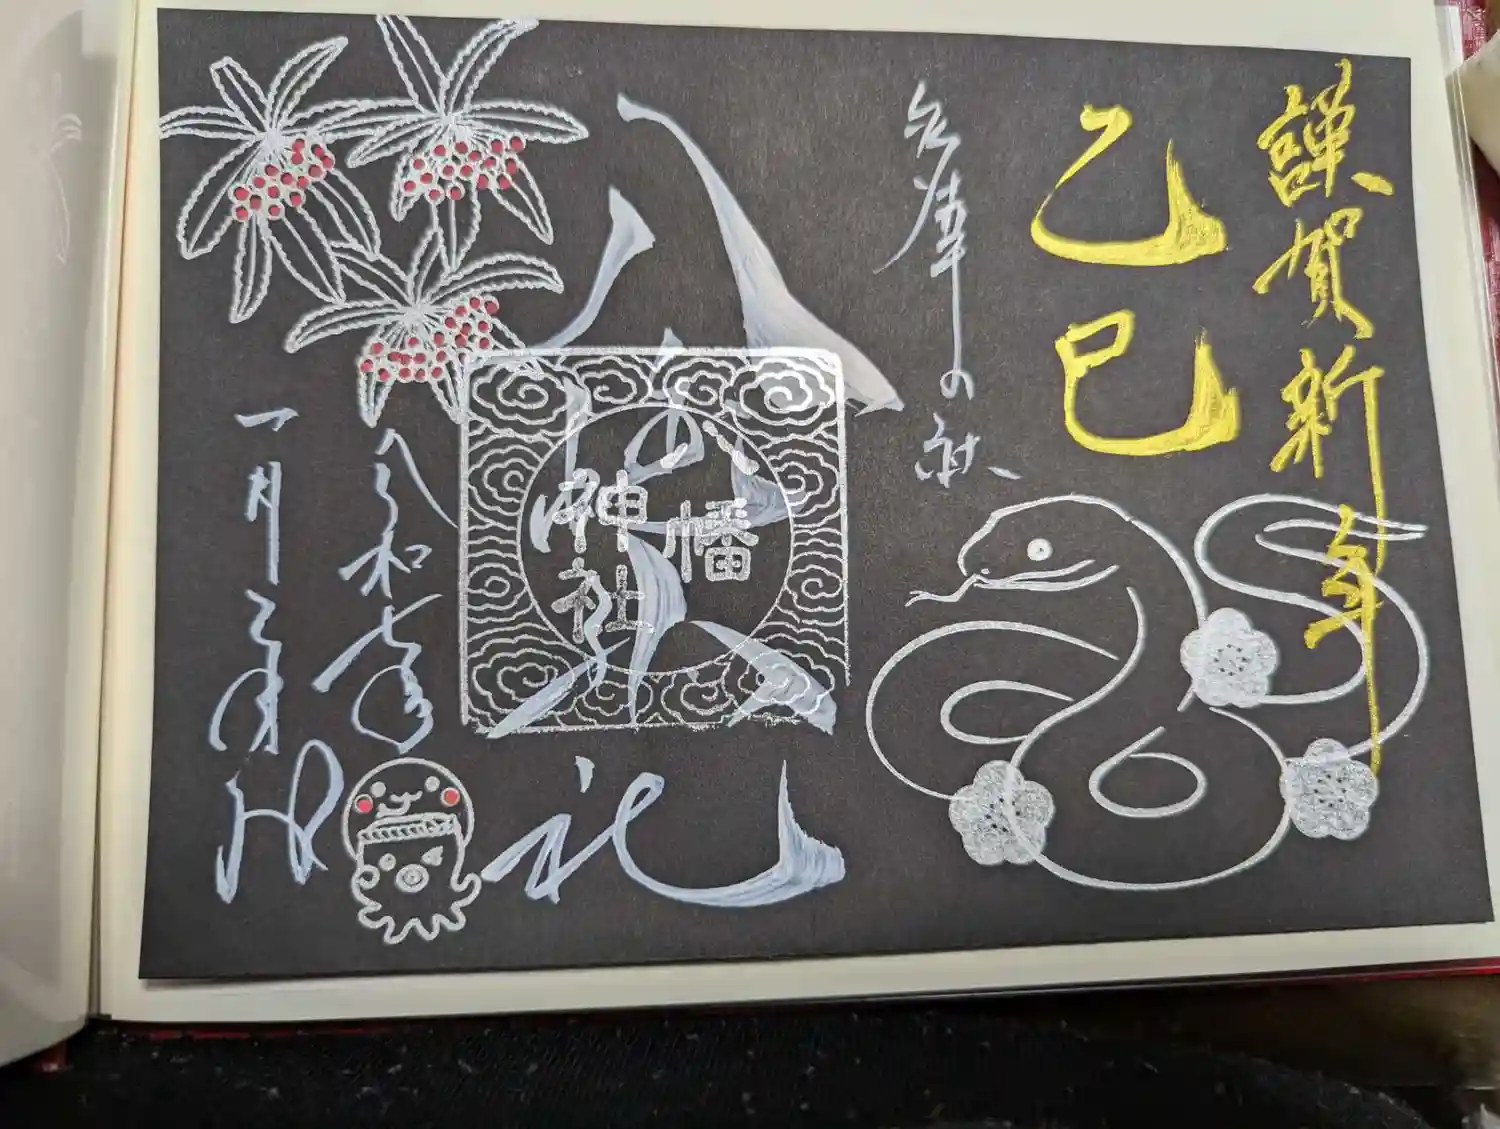 謹賀新年
乙巳
の社
八幡神社
八幡
神社
令和七年
一月